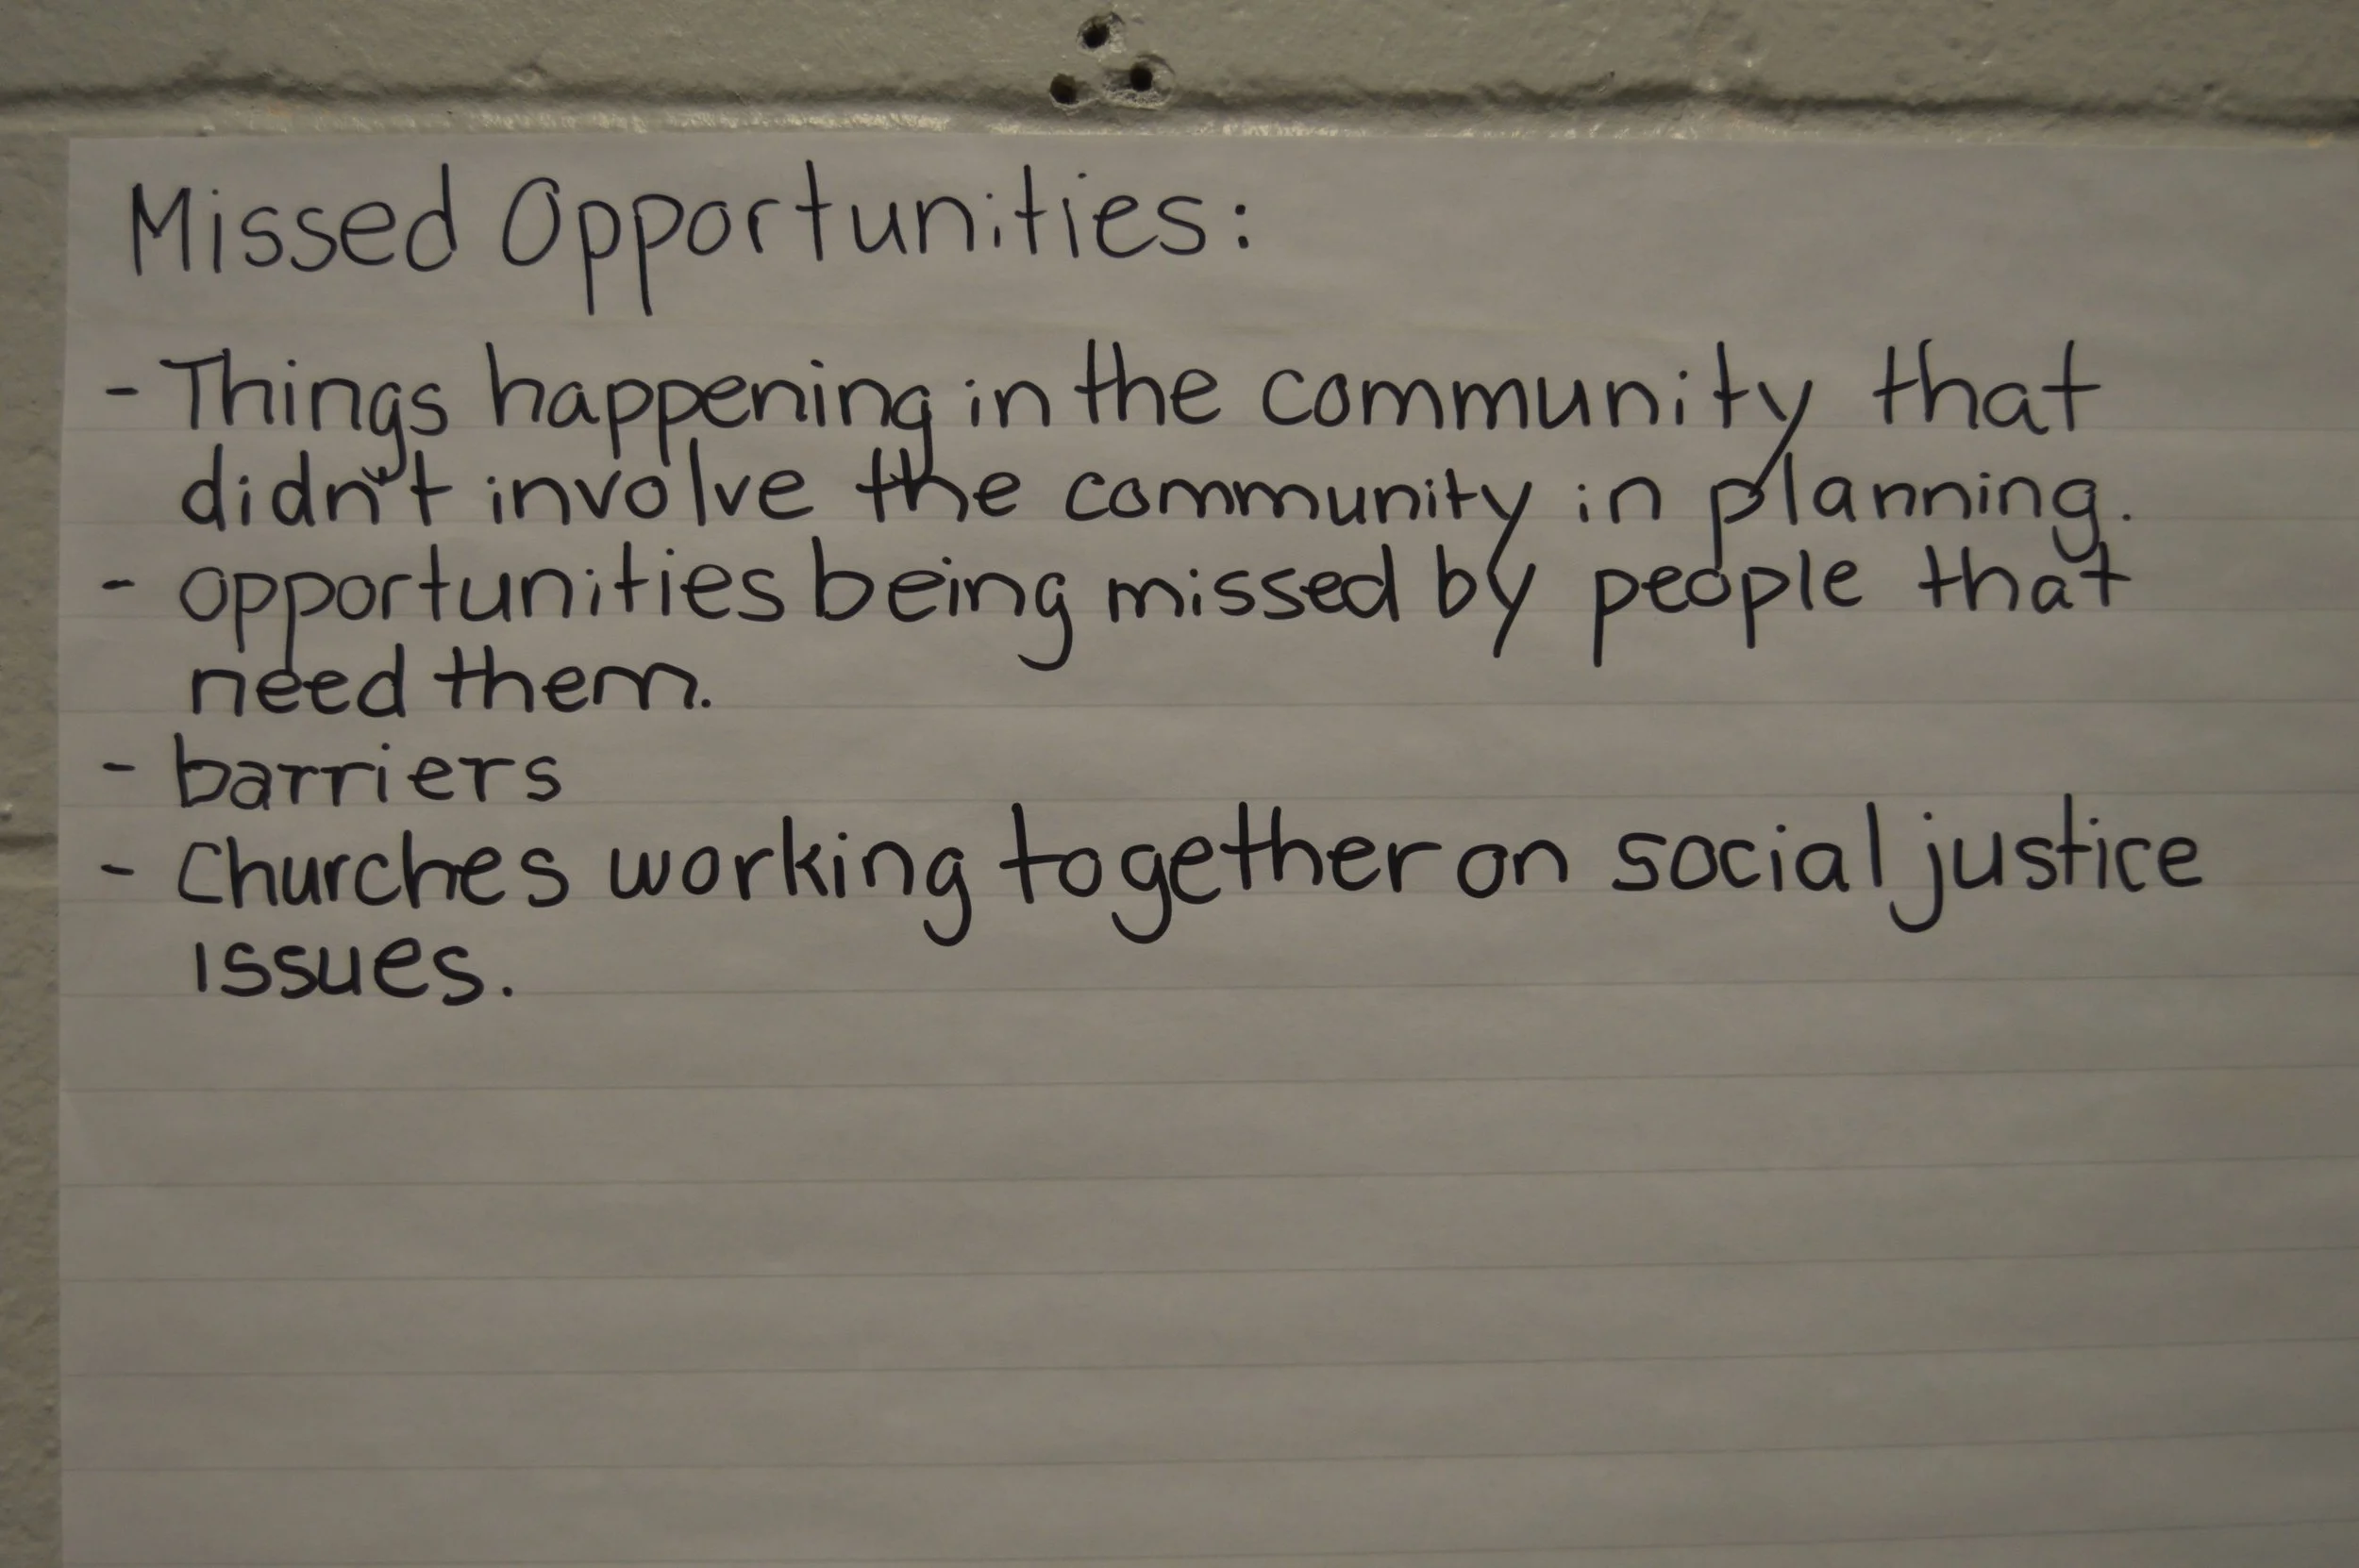 Missed Opportunities:
- Things happening in the community that
didn't involve the community in planning.
- opportunities being missed by people that
need them.
- barriers
- Churches working together on social justice
issues.